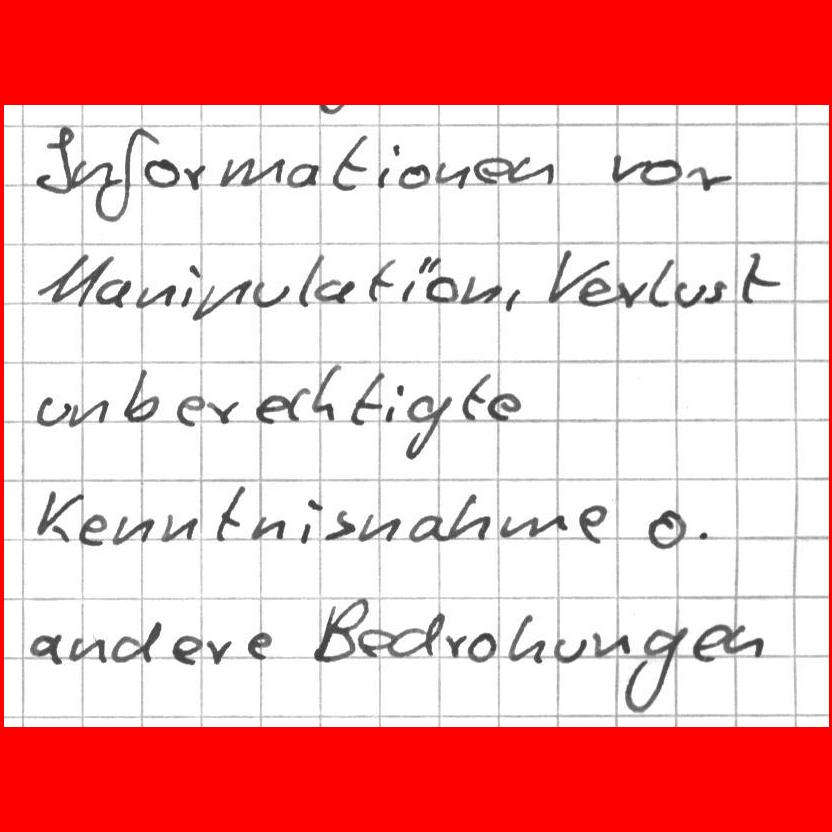 Informationen vor
Maninulation, Verlust
unberechtigte
Kenntnisnahme o.
andere Bedrohungen